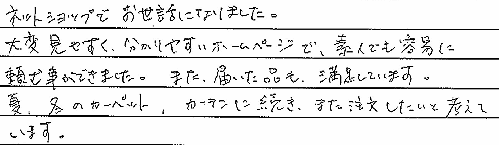 ネットショップで お世話になりました。
大変見やすく、分かりやすいホームページで、素人でも容易に
頼む事ができました。また、届いた品も、満足しています。
夏、冬のカーペット、カーテンに続き、また注文したいと考えて
います。